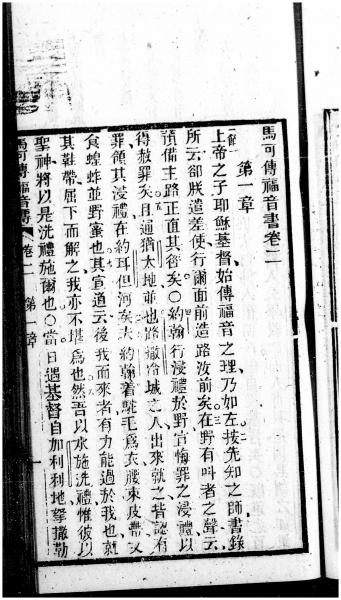 馬可傳福音書卷二
第一章
上帝之子耶穌基督始傳福音之理乃如左按先知之師書錄
所云卻朕遣差使行爾面前造路汝前矣在野有叫者之聲云
預備主路正直其徑矣〇約翰行浸禮於野宣悔罪之浸禮以
得赦罪矣且通猶太地並也路撒冷城之人出來就之皆認有
罪領其浸禮在約耳但河矣夫約翰着駝毛爲衣腰束皮帶又
食蝗蚱並野蜜也其宣道云後我而來者有力能過於我也就
其鞋帶屈下而解之我亦不堪爲也然吾以水施洗禮惟彼以
聖神將以是洗禮施爾也〇當日遇基督自加利利地拏撒勒
馬可傳福音書 卷二 第一章